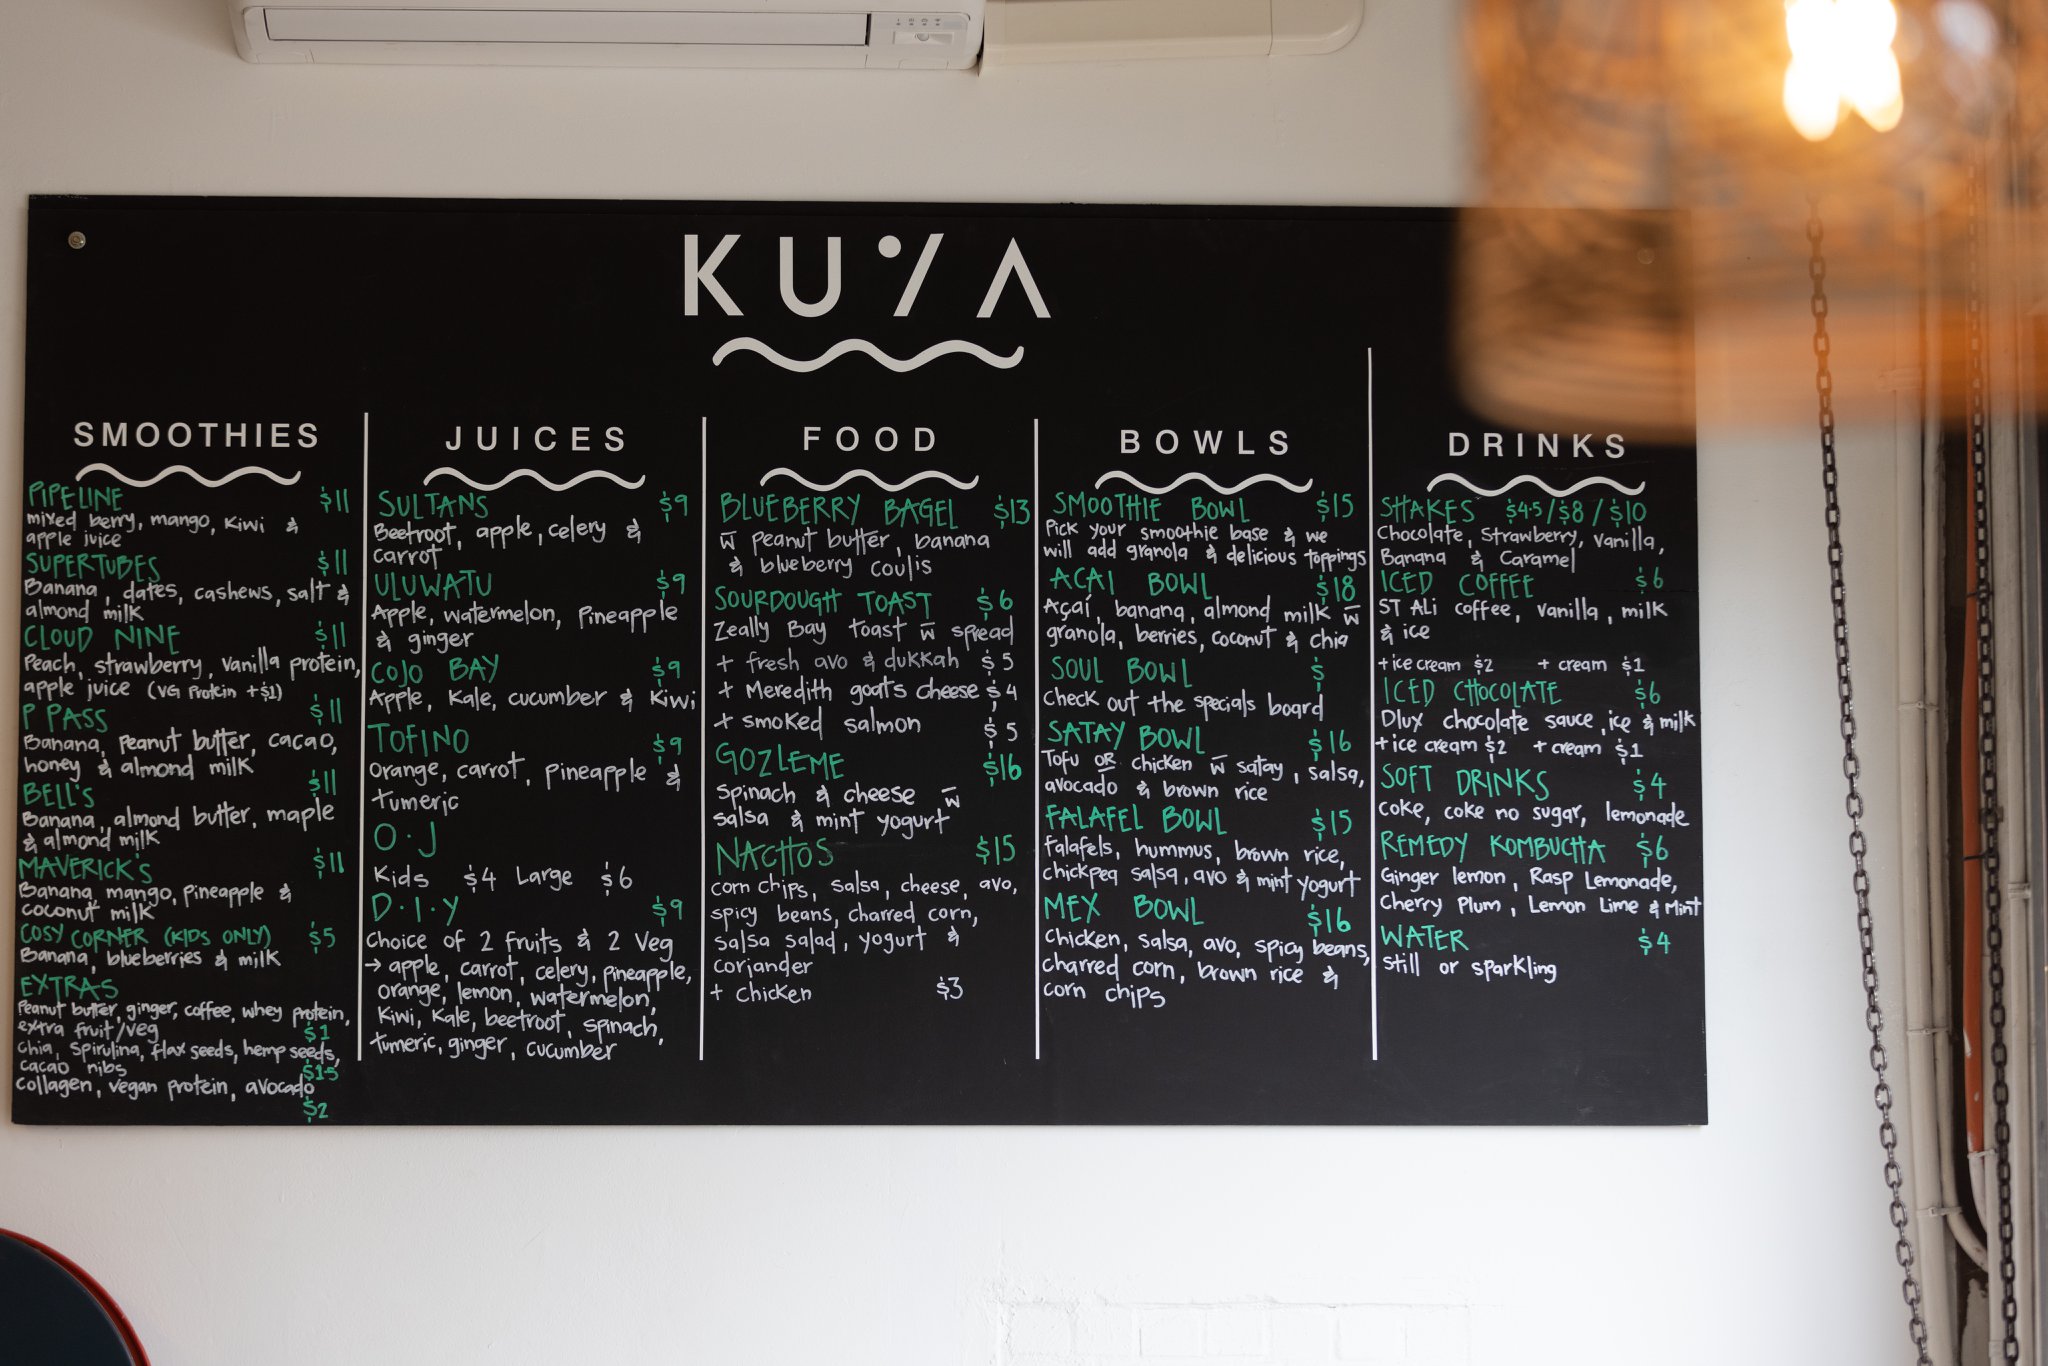 KUYA
SMOOTHIES
PIPELINE $11
mixed berry, mango, kiwi &
apple juice
SUPERTUBES $11
Banana, dates, cashews, salt &
almond milk
CLOUD NINE $11
Peach, strawberry, vanilla protein,
apple juice (VG Protein +$1)
P PASS $11
Banana, Peanut butter, cacao,
honey & almond milk
BELL'S $11
Banana, almond butter, maple
& almond milk
MAVERICK'S $11
Banana, mango, Pineapple &
coconut milk
COSY CORNER (KIDS ONLY) $5
Banana, blueberries & milk
EXTRAS
Peanut butter, ginger, coffee, whey protein,
extra fruit/veg $1
chia, spirulina, flax seeds, hemp seeds,
cacao nibs $1.5
collagen, vegan protein, avocado
$2
JUICES
SULTANS $9
Beetroot, apple, celery &
carrot
ULUWATU $9
Apple, watermelon, Pineapple
& ginger
COJO BAY $9
Apple, Kale, cucumber & Kiwi
TOFINO $9
Orange, carrot, pineapple &
tumeric
O.J
Kids $4 Large $6
D.I.Y $9
Choice of 2 fruits & 2 Veg
→ apple, carrot, celery, pineapple,
orange, lemon, watermelon,
Kiwi, Kale, beetroot, spinach,
tumeric, ginger, cucumber
FOOD
BLUEBERRY BAGEL $13
w̅ peanut butter, banana
& blueberry coulis
SOURDOUGH TOAST $6
Zeally Bay toast w̅ spread
+ fresh avo & dukkah $5
+ Meredith goats cheese $4
+ smoked salmon $5
GOZLEME $16
Spinach & cheese w̅
salsa & mint yogurt
NACHOS $15
corn chips, salsa, cheese, avo,
spicy beans, charred corn,
salsa salad, yogurt &
coriander
+ chicken $3
BOWLS
SMOOTHIE BOWL $15
Pick your smoothie base & we
will add granola & delicious toppings
ACAI BOWL $18
Açaí, banana, almond milk w̅
granola, berries, coconut & chia
SOUL BOWL $
Check out the specials board
SATAY BOWL $16
Tofu OR chicken w̅ satay, salsa,
avocado & brown rice
FALAFEL BOWL $15
falafels, hummus, brown rice,
chickpea salsa, avo & mint yogurt
MEX BOWL $16
Chicken, salsa, avo, spicy beans,
charred corn, brown rice &
corn chips
DRINKS
SHAKES $4.5/$8/$10
Chocolate, Strawberry, Vanilla,
Banana & Caramel
ICED COFFEE $6
ST ALi coffee, vanilla, milk
& ice
+ice cream $2 + cream $1
ICED CHOCOLATE $6
Dlux chocolate sauce, ice & milk
+ice cream $2 +cream $1
SOFT DRINKS $4
coke, coke no sugar, lemonade
REMEDY KOMBUCHA $6
Ginger lemon, Rasp Lemonade,
Cherry Plum, Lemon Lime & Mint
WATER $4
still or sparkling